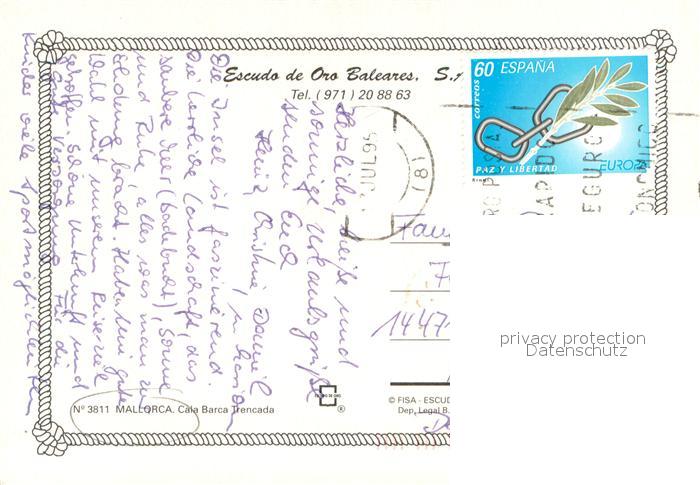 Escudo de Oro Baleares. S.A
Tel. (971) 20 88 63
60 ESPAÑA
correos
PAZ Y LIBERTAD
EUROPA
JUL 95
(8)
Herzliche, heiße und
sonnige Urlaubsgrüße
senden Euch
Heinz, Christine, Daniel
Die Insel ist faszinierend.
Die herrliche Landschaft, das
saubere Meer (Badebucht), Sonne
und Ruhe, alles was man zur
Erholung braucht. Haben eine gute
Wahl mit unserem Reiseziel
getroffen, schöne Unterkunft und
Verpflegung. Für die
Kinder viele Sportmöglichkeiten.
Fam
1447
Nº 3811 MALLORCA. Cala Barca Trencada
ESCUDO DE ORO
®
© FISA - ESCUD
Dep. Legal B.
privacy protection
Datenschutz